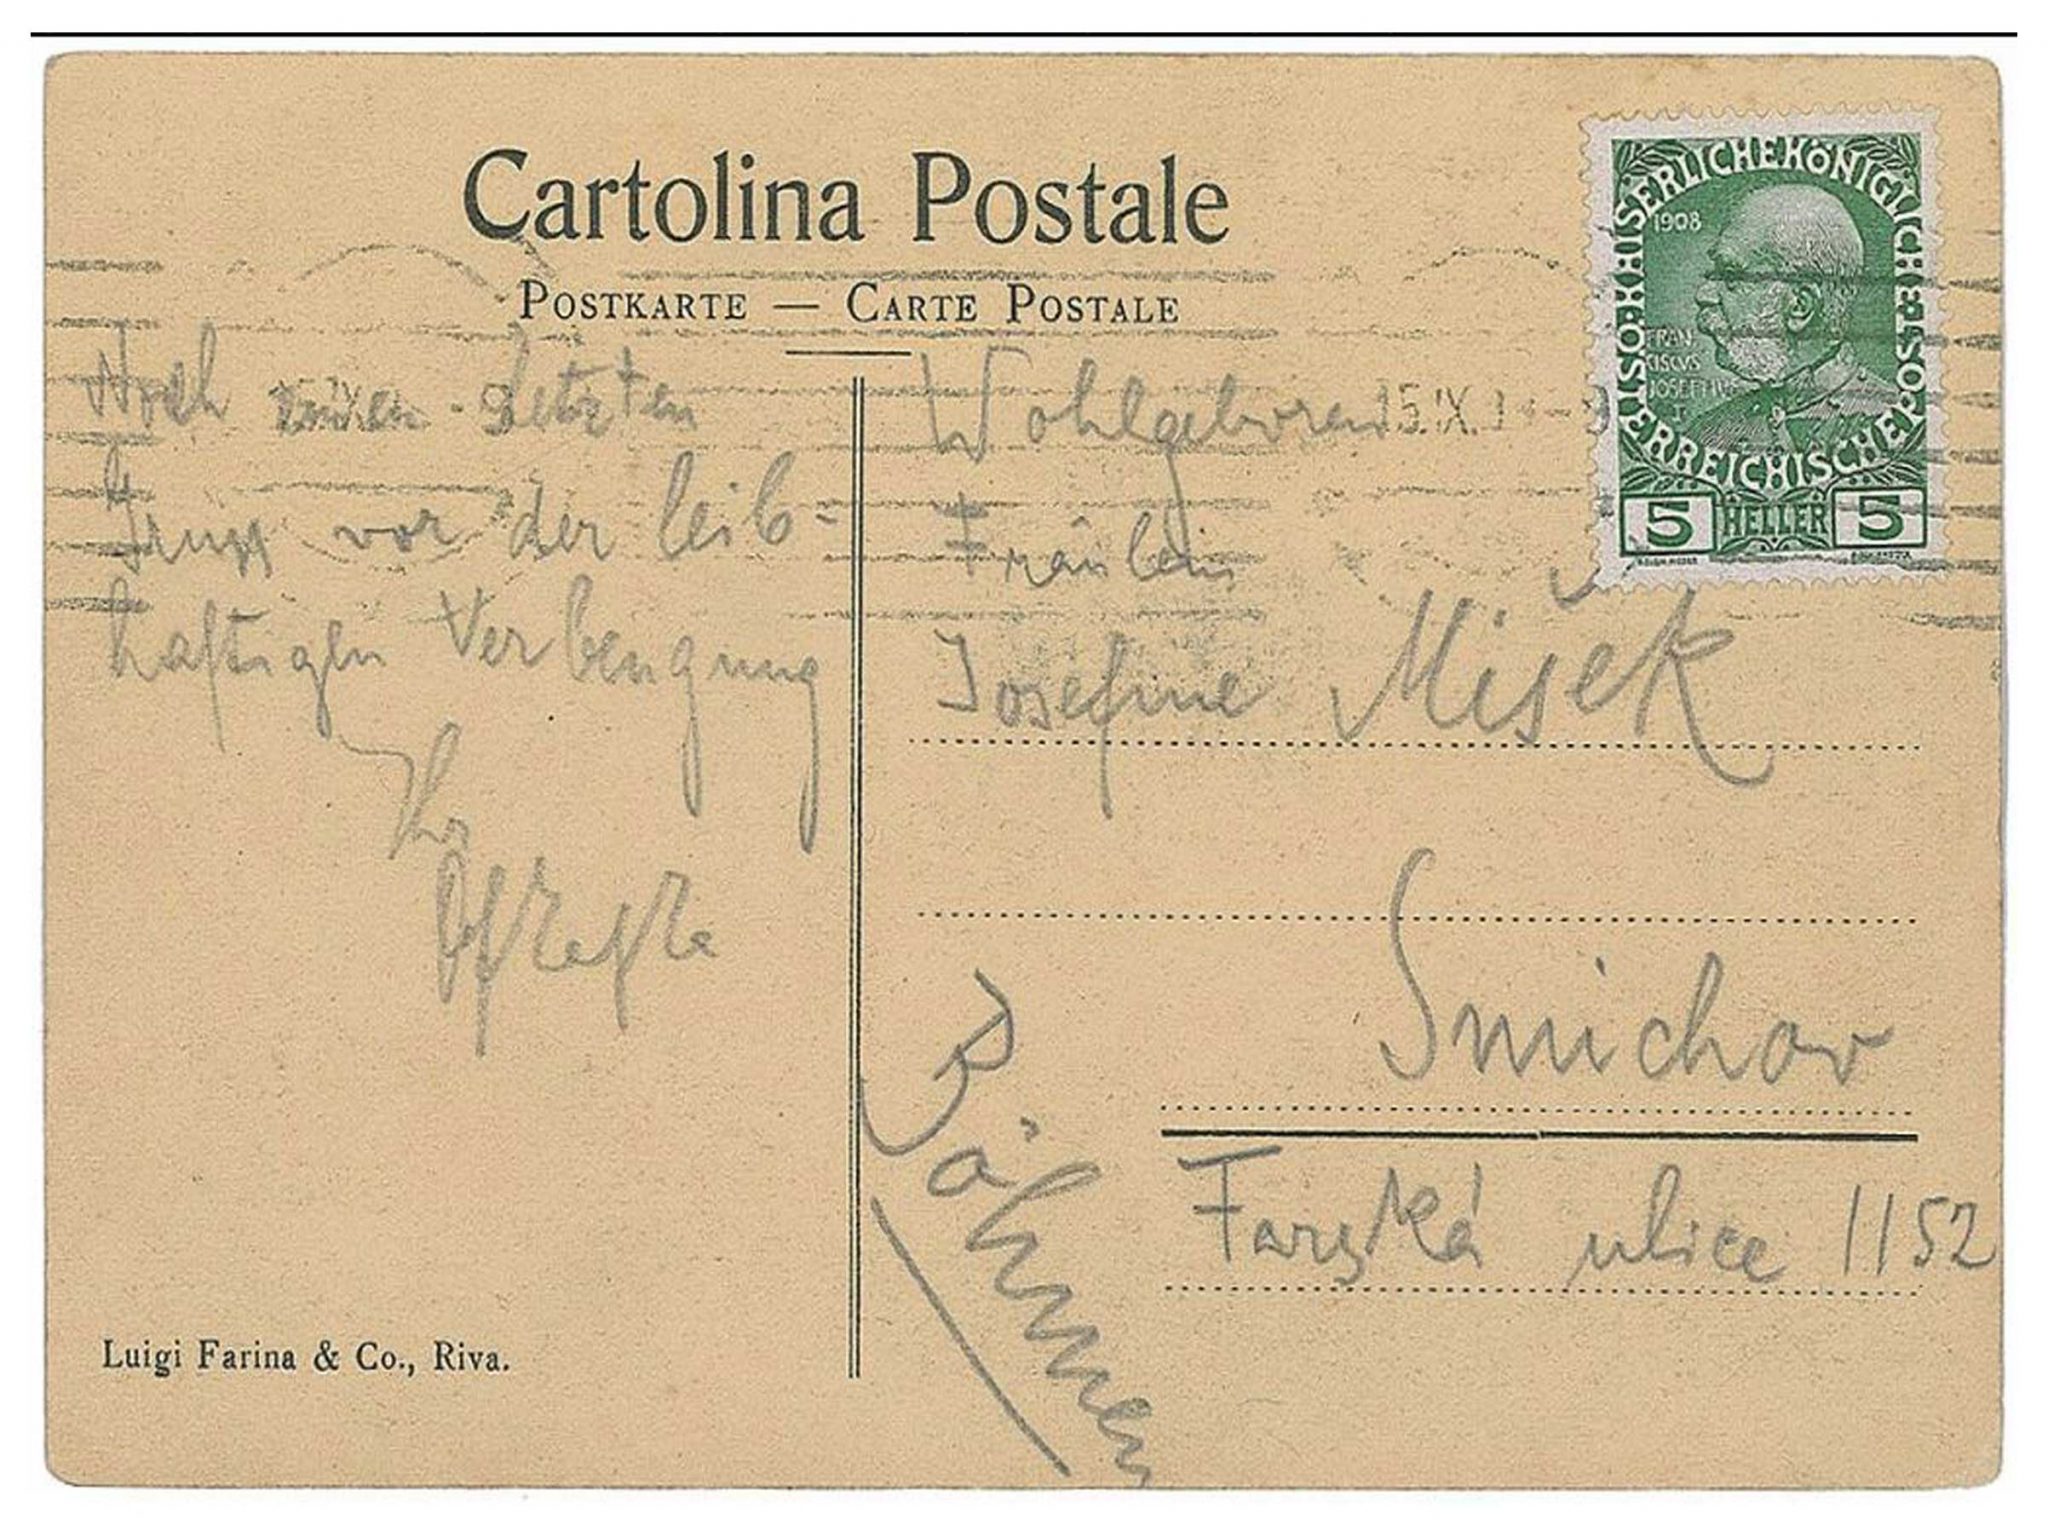 Cartolina Postale
POSTKARTE — CARTE POSTALE
KAISERLICHE KÖNIGLICHE ÖSTERREICHISCHE POST
1908
FRAN
CISCVS
IOSEPHVS
I
5 HELLER 5
Noch einen letzten
Gruss vor der leib-
haftigen Verbeugung
Ihr
Wohlgeboren
15.IX.
Fräulein
Josefine Mišek
Smichov
Farská ulice 1152
Böhmen
Luigi Farina & Co., Riva.